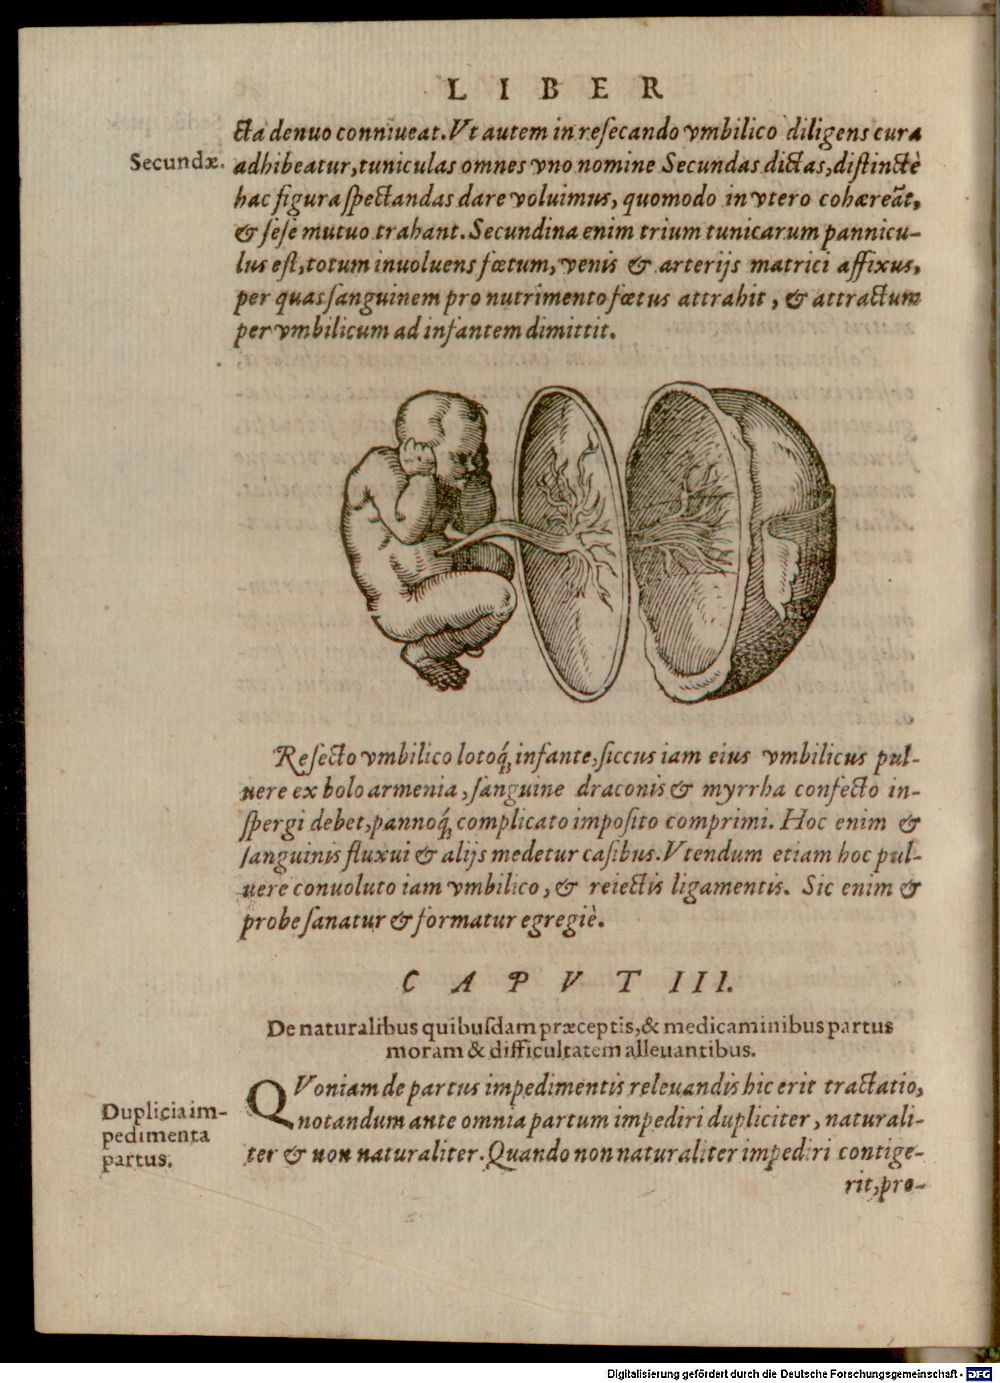 LIBER
cta denuo conniueat. Vt autem in resecando vmbilico diligens cura
Secundæ.
adhibeatur, tuniculas omnes vno nomine Secundas dictas, distinctè
hac figura spectandas dare voluimus, quomodo in vtero cohæreāt,
& sese mutuo trahant. Secundina enim trium tunicarum pannicu-
lus est, totum inuoluens fœtum, venis & arterijs matrici affixus,
per quas sanguinem pro nutrimento fœtus attrahit, & attractum
per vmbilicum ad infantem dimittit.
Resecto vmbilico lotoq́; infante, siccus iam eius vmbilicus pul-
uere ex bolo armenia, sanguine draconis & myrrha confecto in-
spergi debet, pannoq́; complicato imposito comprimi. Hoc enim &
sanguinis fluxui & alijs medetur casibus. Vtendum etiam hoc pul-
uere conuoluto iam vmbilico, & reiectis ligamentis. Sic enim &
probe sanatur & formatur egregiè.
CAPVT III.
De naturalibus quibusdam præceptis, & medicaminibus partus
moram & difficultatem alleuantibus.
QVoniam de partus impedimentis releuandis hic erit tractatio,
notandum ante omnia partum impediri dupliciter, naturali-
ter & non naturaliter. Quando non naturaliter impediri contige-
Duplicia im-
pedimenta
partus.
rit, pro-
Digitalisierung gefördert durch die Deutsche Forschungsgemeinschaft - DFG